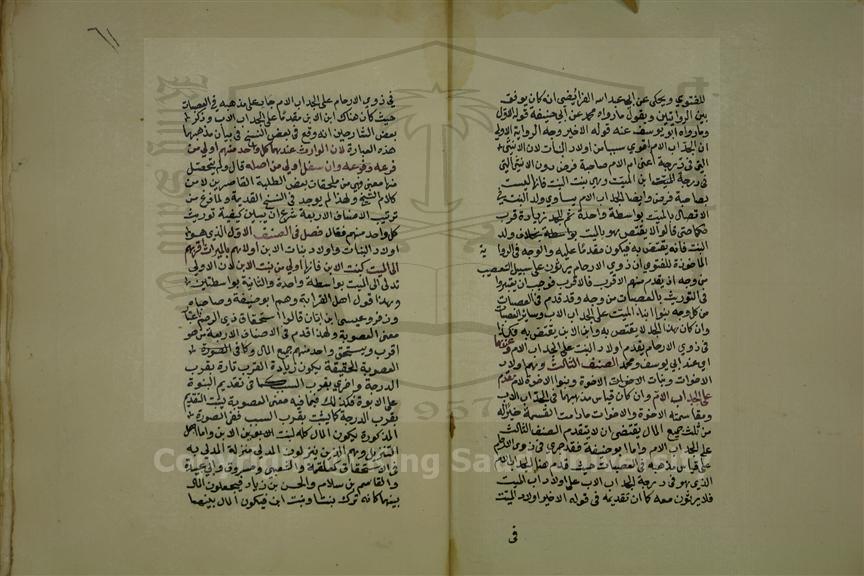 للفتوي ويحكى عن ابي عبد الله الفرايضي انه كان يوفق
بين الروايتين ويقول ما رواه محمد عن ابي حنيفة قوله الاول
وما رواه ابو يوسف عنه قوله الاخير وجه الرواية الاولي
ان الجد اب الام اقوي سببا من اولاد البنات لان الانثى
التي في درجة اعني ام الام صاحبة فرض دون الانثى التي
في درجة الميت وهي بنت البنت فانها ليست
بصاحبة فرض وايضا الجد اب الام يساوي ولد البنت في
الاتصال بالميت بواسطة واحدة ثم الجد زيادة قرب
البنت فانه يقتص به فيكون مقدما عليه والوجه في الرواية
الماخوذة للفتوي ان ذوي الارحام يرثون على سبيل التعصيب
من وجه اذ يقدم منهم الاقرب فالاقرب فوجب ان يعتبروا
في التوريث بالعصبات من وجه وقد قدم في العصبات
من كل وجه بنوا ابناء الميت على الجد اب الاب وسائر العصبات
في ذوي الارحام يقدم اولاد البنت على الجد اب الام وعندهما
اي عند ابي يوسف ومحمد الصنف الثالث وهم اولاد
الاخوات وبنات الاخوة وبنوا الاخوة لام مقدم
على الجد اب الام وان كان قياس مذهبهما في الجد اب الاب
ومقاسمته الاخوة والاخوات مادامت القسمة خيرا له
من ثلث جميع المال يقتضي ان لا يتقدم الصنف الثالث
على الجد اب الام واما ابو حنيفة فقد جري في ذوي الارحام
على قياس مذهبه في العصبات حيث قدم هنا الجد اب الام
الذي هو في درجة الجد اب الاب على اولاد اب الميت
فلا يرثون معه كما ان تقديمه في قوله الاخير اولاد الميت
في
٦١
في ذوي الارحام على الجد اب الام جار على مذهبه في العصبات
حيث كان هناك ابن الابن مقدما على الجد اب الاب وذكر
بعض الشارحين انه وقع في بعض النسخ في بيان مذهبهما
هذه العبارة لان الوارث عندهما كل واحد منهم اولي من
فرعه وفرعه وان سفل اولي من اصله قال ولم يتحصل
منها معنى فهي من ملحقات بعض الطلبة القاصرين لا من
كلام الشيخ ولهذا لم يوجد في النسخ القديمة ولما فرغ من
ترتيب الاصناف الاربعة شرع ان يبين كيفية توريث
كل واحد منهم فقال فصل في الصنف الاول الذي هو
اولاد البنات واولاد بنات الابن اولاهم بالميراث اقربهم
الى الميت كبنت البنت فانها اولي من بنت بنت الابن لان الاولي
تدلي الى الميت بواسطة واحدة والثانية بواسطتين
وبهذا قول اهل القرابة وهم ابو حنيفة وصاحباه
وزفر وعيسى ابن ابان قالوا استحقاق ذي الرحم باعتبار
معنى العصوبة ولهذا قدم في الاصناف الاربعة من هو
اقرب ويستحق واحد منهم جميع المال وكما في الصورة
العصوبة الحقيقة يكون زيادة القرب تارة بقرب
الدرجة واخري بقرب السبب كما في تقديم البنوة
على الابوة فكذلك فيما فيه معنى العصوبة يثبت التقديم
بقرب الدرجة كما يثبت بقرب السبب ففي الصورة
المذكورة يكون المال كله لبنت البنت واما اهل
التنزيل وهم الذين ينزلون المدلي منزلة المدلي به
في الاستحقاق كعلقمة والشعبي ومسروق
والقاسم بن سلام والحسن بن زياد فيجعلون المال
بينهما كانه ترك بنتا وبنت ابن فيكون المال بينهما